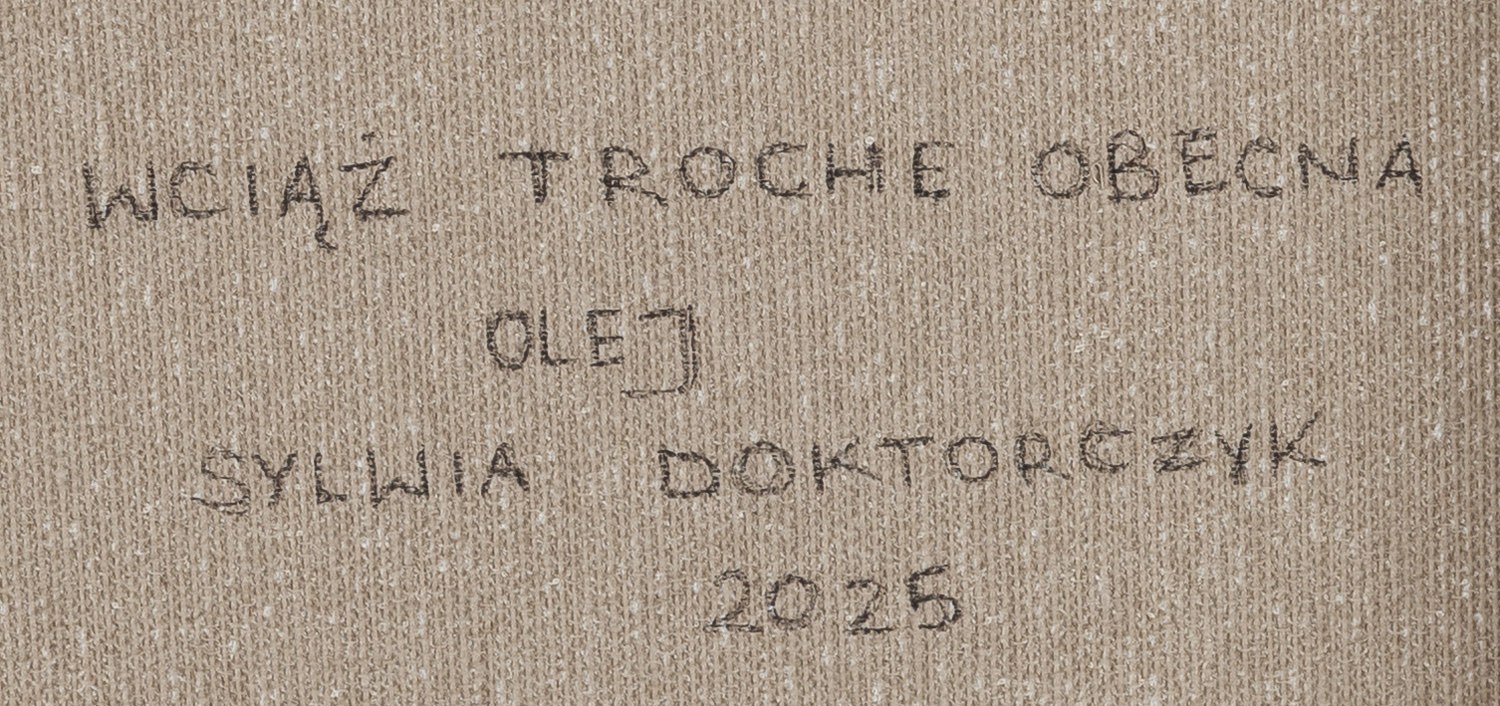 WCIĄŻ TROCHE OBECNA
OLEJ
SYLWIA DOKTORCZYK
2025